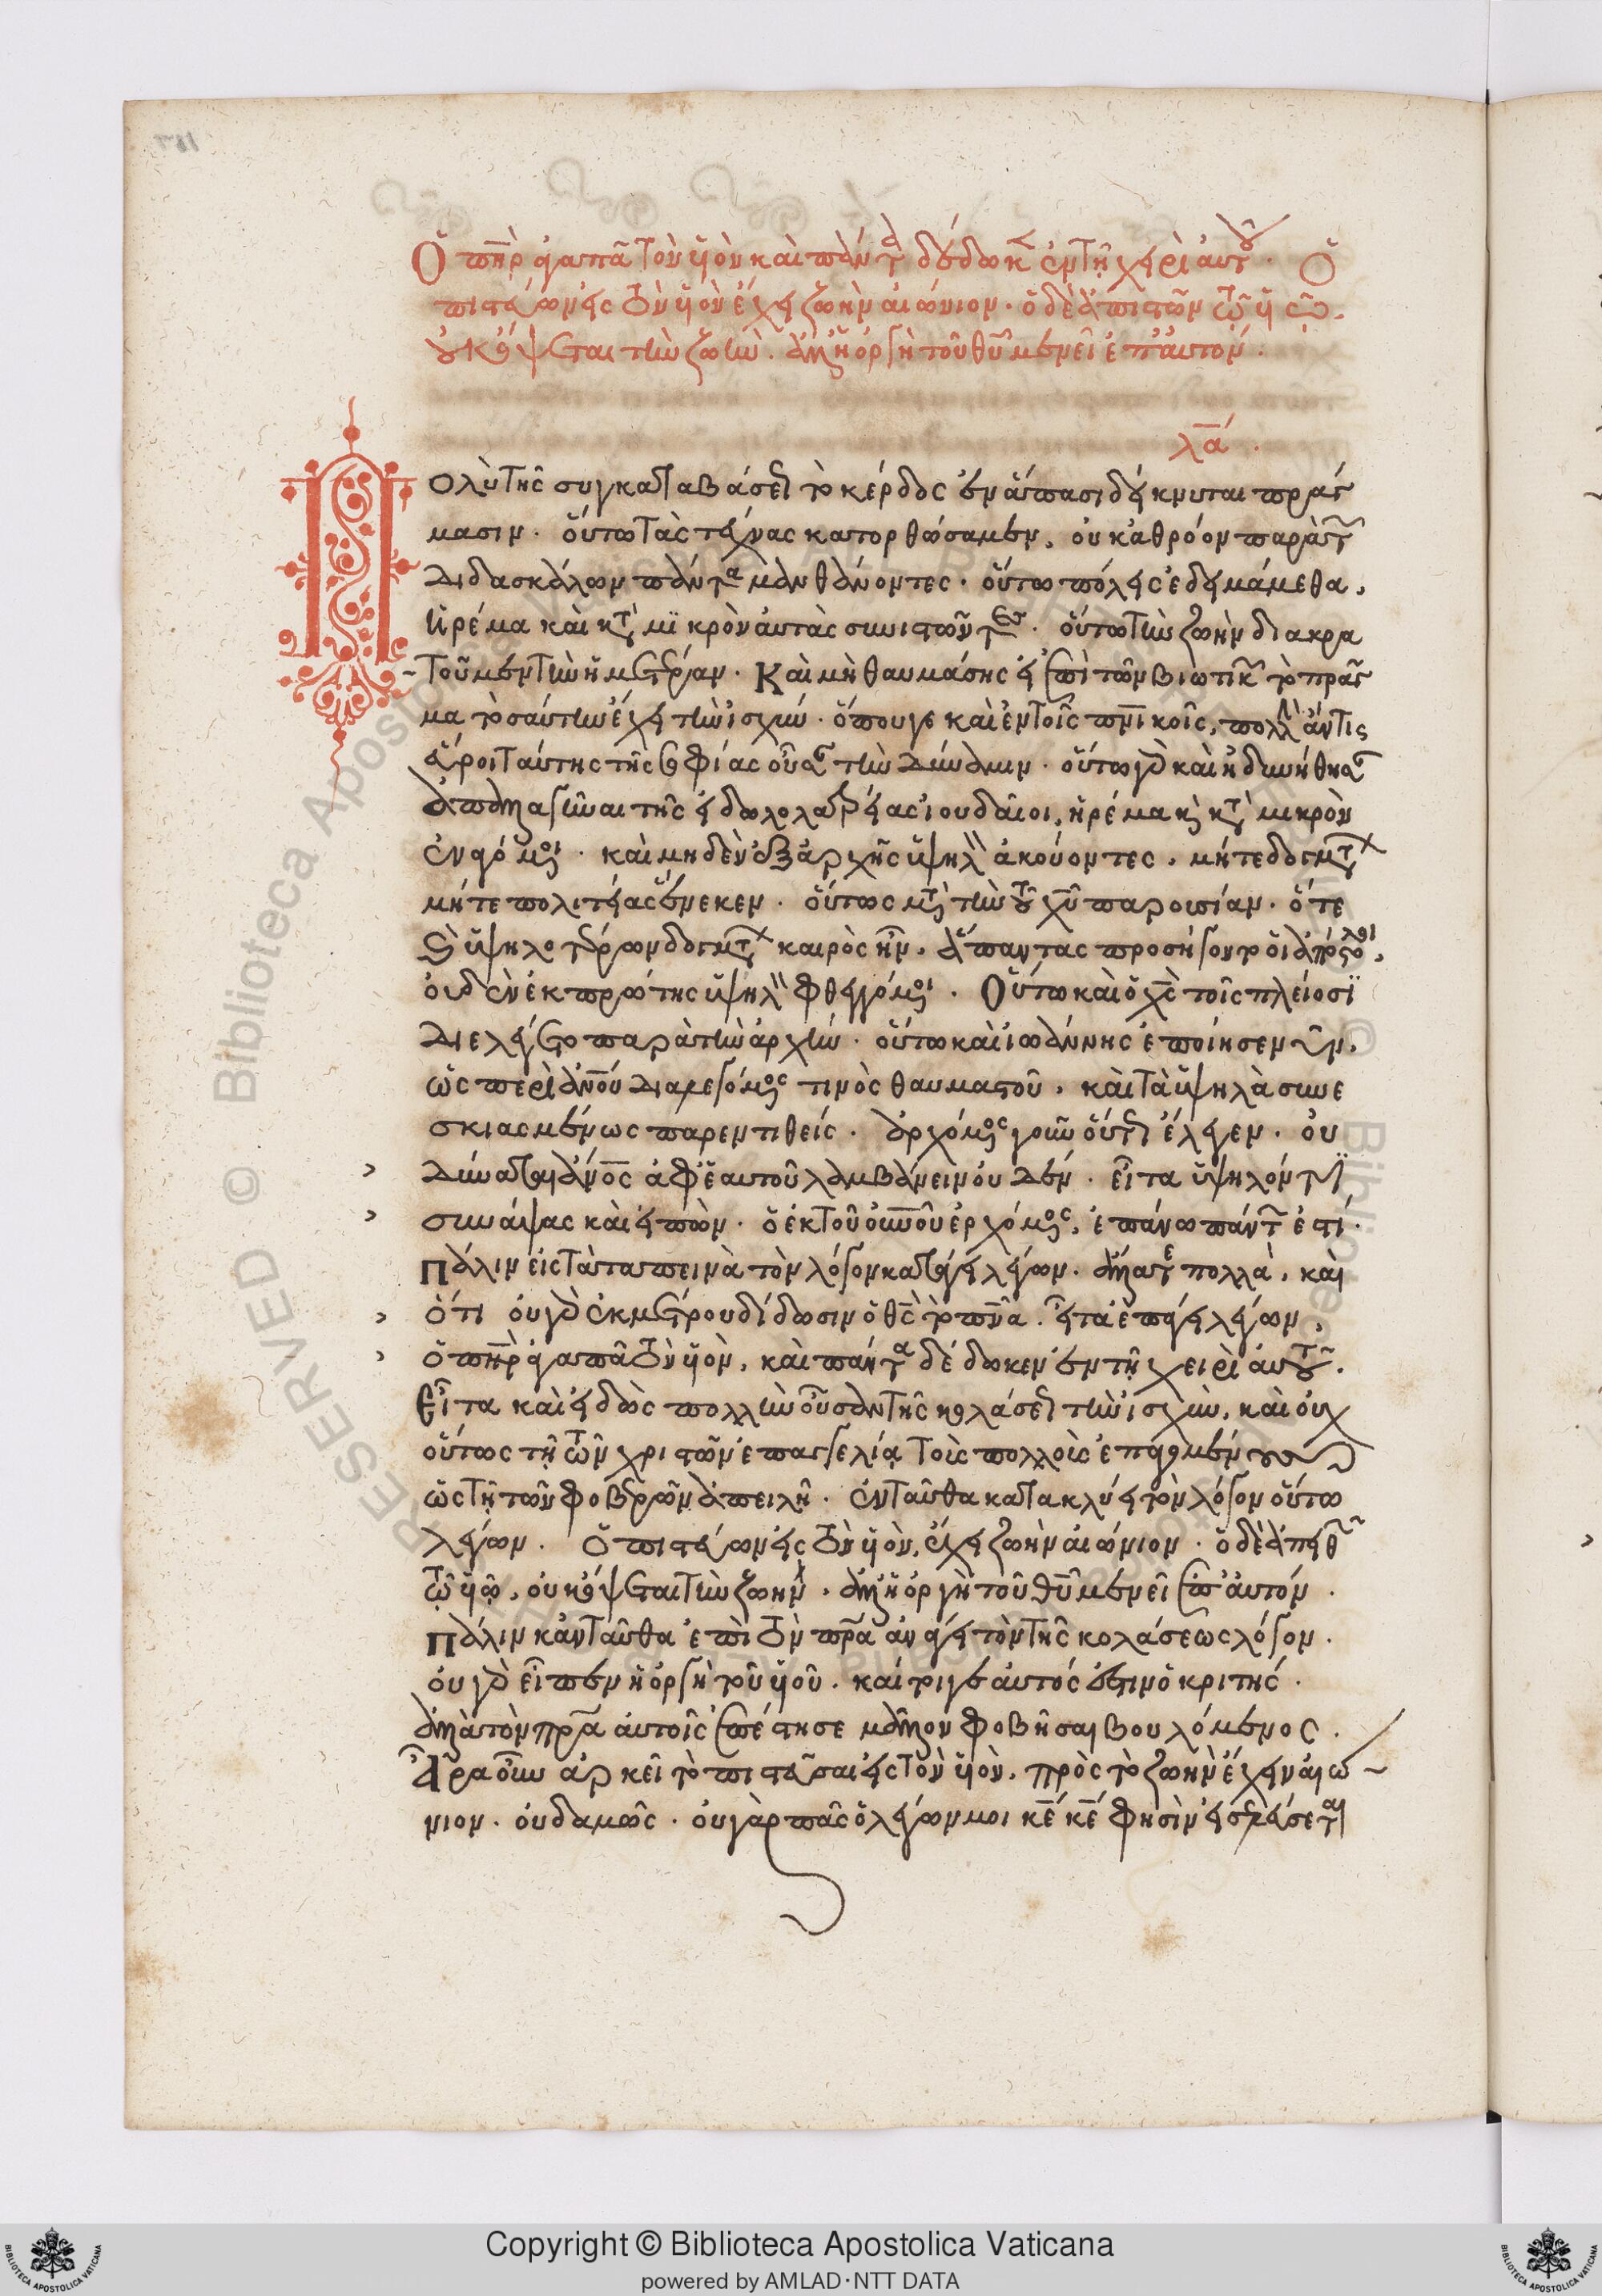 Ὁ πηρ ἀγαπᾶ τὸν υἱὸν καὶ πάντα δέδωκεν ἐν τῇ χειρὶ αὐτοῦ. Ὁ
πιστεύων εἰς τὸν υἱὸν ἔχει ζωὴν αἰώνιον. ὁ δὲ ἀπιστῶν τῷ υἱῷ.
οὐκ ὄψεται τὴν ζωὴν. ἀλλ' ἡ ὀργὴ τοῦ θυ μενεῖ ἐπ' αὐτόν.
λα.
Πολὺ τῆς συγκαταβάσεως τὸ κέρδος ἐν ἅπασι δείκνυται πράγ
μασιν. οὕτω τὰς τέχνας κατορθώσαμεν, οὐκ ἀθρόον παρὰ τῶν
διδασκάλων πάντα μανθάνοντες. οὕτω πόλεις ἐδειμάμεθα,
ἠρέμα καὶ κατὰ μϊκρὸν αὐτὰς συνιστῶντες. οὕτω τὴν ζωὴν διακρα
τοῦμεν τὴν ἡμετέραν. Καὶ μὴ θαυμάσῃς εἰ ἐπὶ τῶν βιωτικῶν τὸ πρᾶγ
μα τοσαύτην ἔχει τὴν ἰσχύν. ὅπου γε καὶ ἐν τοῖς πνικοῖς, πολλὴν ἄν τις
εὕροι ταύτης τῆς σοφίας οὖσαν τὴν δύναμιν. οὕτω γὰρ καὶ ἠδυνήθησαν
ἀπαλλαγῆναι τῆς εἰδωλολατρείας ἰουδαῖοι, ἠρέμα καὶ κατὰ μικρὸν
ἐναγόμενοι. καὶ μηδὲν ἐξ ἀρχῆς ὑψηλὸν ἀκούοντες, μήτε δογμάτων
μήτε πολιτείας ἕνεκεν. οὕτως μετὰ τὴν τοῦ χυ παρουσίαν. ὅτε
τῶν ὑψηλοτέρων δογμάτων καιρὸς ἦν, ἅπαντας προσήγοντο οἱ ἀπόστολοι,
οὐδὲν ἐκ πρώτης ὑψηλὸν φθεγγόμενοι. Οὕτω καὶ ὁ χς τοῖς πλείοσϊ
διελέγετο παρὰ τὴν ἀρχήν. οὕτω καὶ ἰωάννης ἐποίησεν νῦν,
ὡς περὶ ανου διαλεγόμενος τινὸς θαυμαστοῦ, καὶ τὰ ὑψηλὰ συνε
σκιασμένως παρεντιθείς. ἀρχόμενος γοῦν οὕτως ἔλεγεν. οὐ
δύναται ανος ἀφ' ἑαυτοῦ λαμβάνειν οὐδέν. εἶτα ὑψηλόν τϊ
συνάψας καὶ εἰπὼν. ὁ ἐκ τοῦ ουνου ἐρχόμενος, ἐπάνω πάντων ἐστί.
πάλιν εἰς τὰ ταπεινὰ τὸν λόγον κατάγει λέγων. ἄλλά τε πολλὰ, καὶ
ὅτι οὐ γὰρ ἐκ μέτρου δίδωσιν ὁ θς τὸ πνα. εἶτα ἐπάγει λέγων,
ὁ πηρ ἀγαπᾶ τὸν υἱὸν, καὶ πάντα δέδωκεν ἐν τῇ χειρὶ αὐτοῦ.
Εἶτα καὶ εἰδὼς πολλὴν οὖσαν τῆς κολάσεως τὴν ἰσχὺν, καὶ οὐχ
οὕτως τῇ τῶν χρηστῶν ἐπαγγελίᾳ τοὺς πολλοὺς ἐπαγομένους
ὡς τῇ τῶν φοβερῶν ἀπειλῇ. ἐνταῦθα κατακλείει τὸν λόγον οὕτω
λέγων. Ὁ πιστεύων εἰς τὸν υἱὸν, ἔχει ζωὴν αἰώνιον. ὁ δὲ ἀπειθῶν
τῷ υἱῷ, οὐκ ὄψεται τὴν ζωήν. ἀλλ' ἡ ὀργὴ τοῦ θυ μενεῖ ἐπ' αὐτόν.
πάλιν κἀνταῦθα ἐπὶ τὸν πρα ἀνάγει τὸν τῆς κολάσεως λόγον.
οὐ γὰρ εἶπεν ἡ ὀργὴ τοῦ υἱοῦ. καίτοιγε αὐτός ἐστιν ὁ κριτής.
ἀλλὰ τὸν πρα αὐτοῖς ἐπέστησε μᾶλλον φοβῆσαι βουλόμενος.
Ἆρα οὖν ἀρκεῖ τὸ πιστεῦσαι εἰς τὸν υἱὸν, πρὸς τὸ ζωὴν ἔχειν αἰώ
νιον. οὐδαμῶς. οὐ γὰρ πᾶς ὁ λέγων μοι κε κε φησὶν εἰσελεύσεται
Copyright © Biblioteca Apostolica Vaticana
powered by AMLAD·NTT DATA